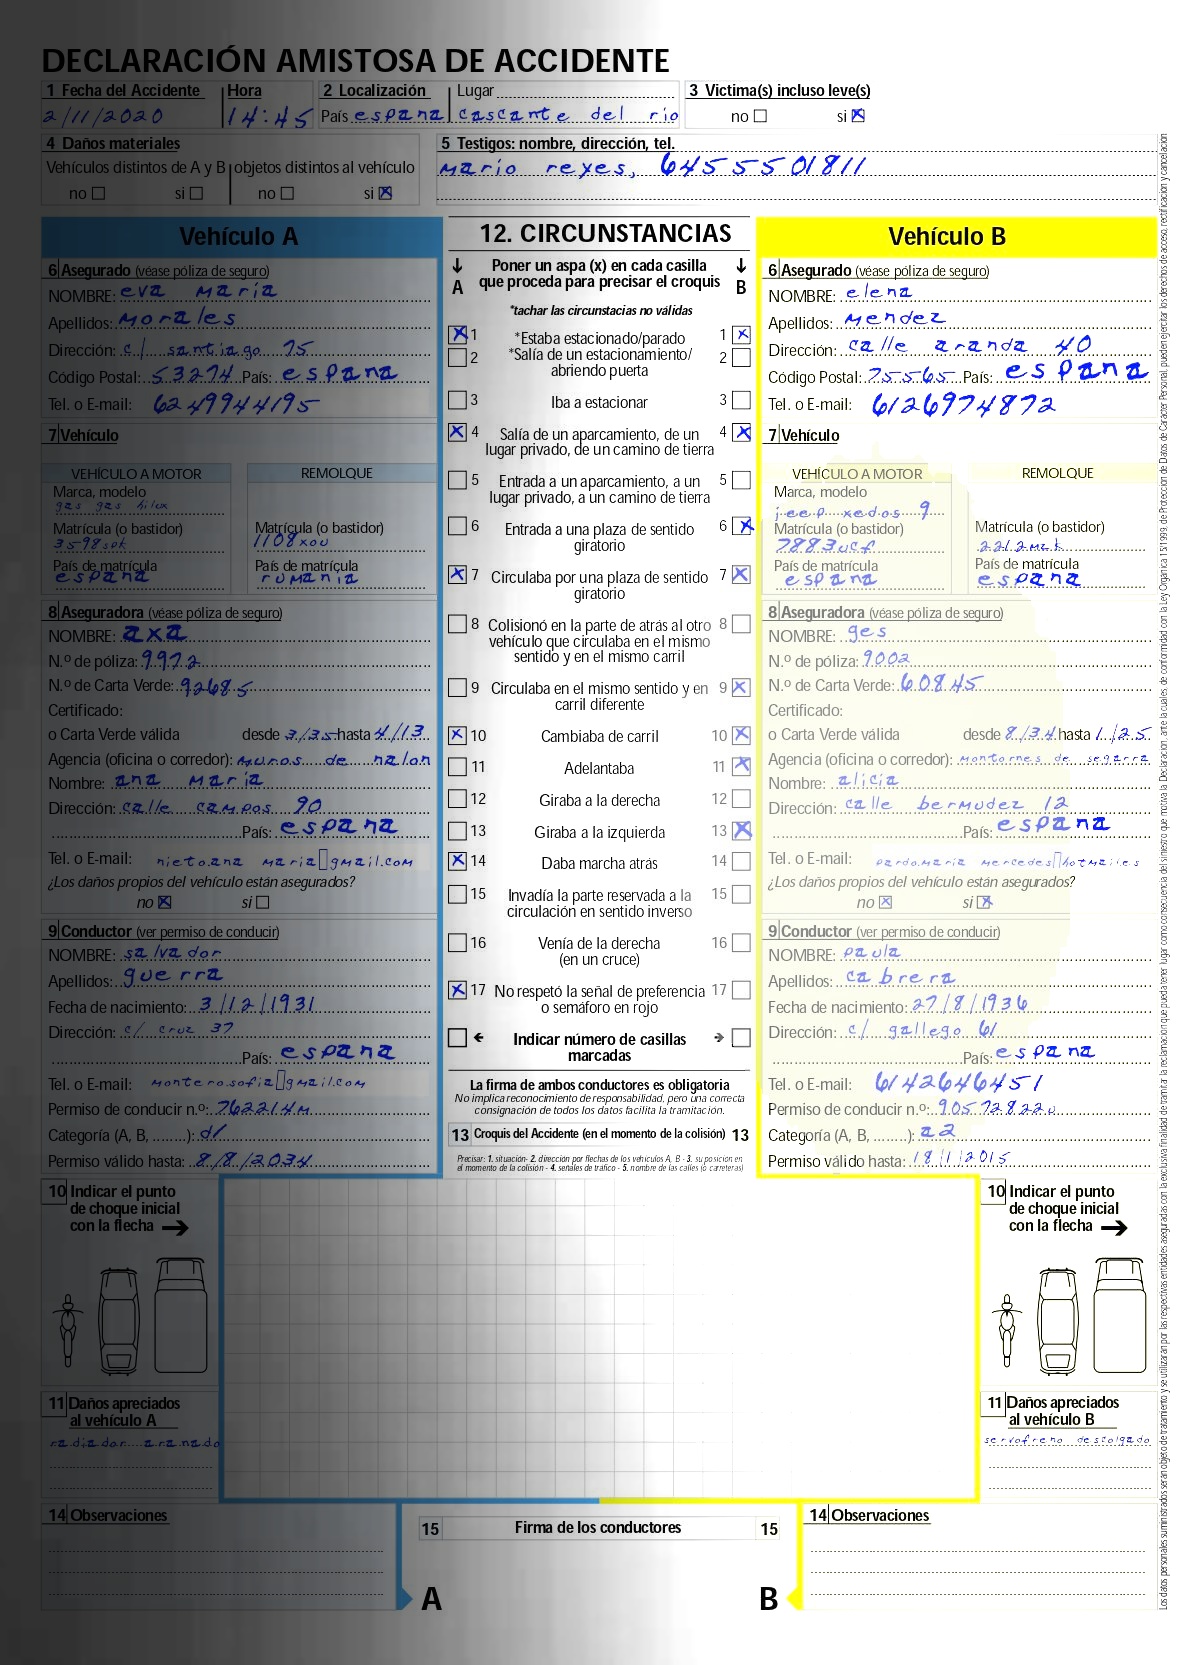 DECLARACIÓN AMISTOSA DE ACCIDENTE
1 Fecha del Accidente Hora 2 Localización Lugar 3 Victima(s) incluso leve(s)
2/11/2020 14:45 País espana cascante del rio no si
4 Daños materiales
Vehículos distintos de A y B objetos distintos al vehículo
no si no si
5 Testigos: nombre, dirección, tel.
mario reyes, 64555501811
Vehículo A
6 Asegurado (véase póliza de seguro)
NOMBRE: eva maria
Apellidos: morales
Dirección: c/ santiago 75
Código Postal: 53274 País: espana
Tel. o E-mail: 6249944195
7 Vehículo
VEHÍCULO A MOTOR REMOLQUE
Marca, modelo
gas gas hilux
Matrícula (o bastidor) Matrícula (o bastidor)
3598spk 1108xou
País de matrícula País de matrícula
espana rumania
8 Aseguradora (véase póliza de seguro)
NOMBRE: axa
N.º de póliza: 9972
N.º de Carta Verde: 92685
Certificado:
o Carta Verde válida desde 3/35 hasta 4/13
Agencia (oficina o corredor): muros de nalon
Nombre: ana maria
Dirección: calle campos 90
País: espana
Tel. o E-mail: nieto.ana maria▯gmail.com
¿Los daños propios del vehículo están asegurados?
no si
9 Conductor (ver permiso de conducir)
NOMBRE: salvador
Apellidos: guerra
Fecha de nacimiento: 3/12/1931
Dirección: c/ cruz 37
País: espana
Tel. o E-mail: montero.sofia▯gmail.com
Permiso de conducir n.º: 762214m
Categoría (A, B, ........): d1
Permiso válido hasta: 8/8/2034
12. CIRCUNSTANCIAS
A Poner un aspa (x) en cada casilla que proceda para precisar el croquis B
*tachar las circunstacias no válidas
1 *Estaba estacionado/parado 1
2 *Salía de un estacionamiento/ 2
abriendo puerta
3 Iba a estacionar 3
4 Salía de un aparcamiento, de un 4
lugar privado, de un camino de tierra
5 Entrada a un aparcamiento, a un 5
lugar privado, a un camino de tierra
6 Entrada a una plaza de sentido 6
giratorio
7 Circulaba por una plaza de sentido 7
giratorio
8 Colisionó en la parte de atrás al otro 8
vehículo que circulaba en el mismo
sentido y en el mismo carril
9 Circulaba en el mismo sentido y en 9
carril diferente
10 Cambiaba de carril 10
11 Adelantaba 11
12 Giraba a la derecha 12
13 Giraba a la izquierda 13
14 Daba marcha atrás 14
15 Invadía la parte reservada a la 15
circulación en sentido inverso
16 Venía de la derecha 16
(en un cruce)
17 No respetó la señal de preferencia 17
o semáforo en rojo
Indicar número de casillas
marcadas
La firma de ambos conductores es obligatoria
No implica reconocimiento de responsabilidad, pero una correcta
consignación de todos los datos facilita la tramitación.
13 Croquis del Accidente (en el momento de la colisión) 13
Precisar: 1. situación- 2. dirección por flechas de los vehículos A, B - 3. su posición en
el momento de la colisión - 4. señales de tráfico - 5. nombre de las calles (o carreteras)
Vehículo B
6 Asegurado (véase póliza de seguro)
NOMBRE: elena
Apellidos: mendez
Dirección: calle aranda 40
Código Postal: 75565 País: espana
Tel. o E-mail: 6126974872
7 Vehículo
VEHÍCULO A MOTOR REMOLQUE
Marca, modelo
jeep xedos 9
Matrícula (o bastidor) Matrícula (o bastidor)
7883ucf 2212mzk
País de matrícula País de matrícula
espana espana
8 Aseguradora (véase póliza de seguro)
NOMBRE: ges
N.º de póliza: 9002
N.º de Carta Verde: 60845
Certificado:
o Carta Verde válida desde 8/34 hasta 1/25
Agencia (oficina o corredor): montornes de segarra
Nombre: alicia
Dirección: calle bermudez 12
País: espana
Tel. o E-mail: pardo.maria mercedes▯hotmail.es
¿Los daños propios del vehículo están asegurados?
no si
9 Conductor (ver permiso de conducir)
NOMBRE: paula
Apellidos: cabrera
Fecha de nacimiento: 27/8/1936
Dirección: c/ gallego 61
País: espana
Tel. o E-mail: 6142646451
Permiso de conducir n.º: 90572822u
Categoría (A, B, ........): a2
Permiso válido hasta: 18/1/2015
10 Indicar el punto
de choque inicial
con la flecha
11 Daños apreciados
al vehículo A
radiador aranado
10 Indicar el punto
de choque inicial
con la flecha
11 Daños apreciados
al vehículo B
servofreno descolgado
14 Observaciones
15 Firma de los conductores 15
A B
14 Observaciones
Los datos personales suministrados seran objeto de tratamiento y se utilizaran por las respectivas entidades aseguradas con la exclusiva finalidad de tramitar la reclamacion que pueda tener lugar como consecuencia del siniestro que motiva la Declaracion, ante la cuales, de conformidad con la Ley Organica 15/1999, de Proteccion de Datos de Caracter Personal, pueden ejercitar los derechos de acceso, rectificacion y cancelacion